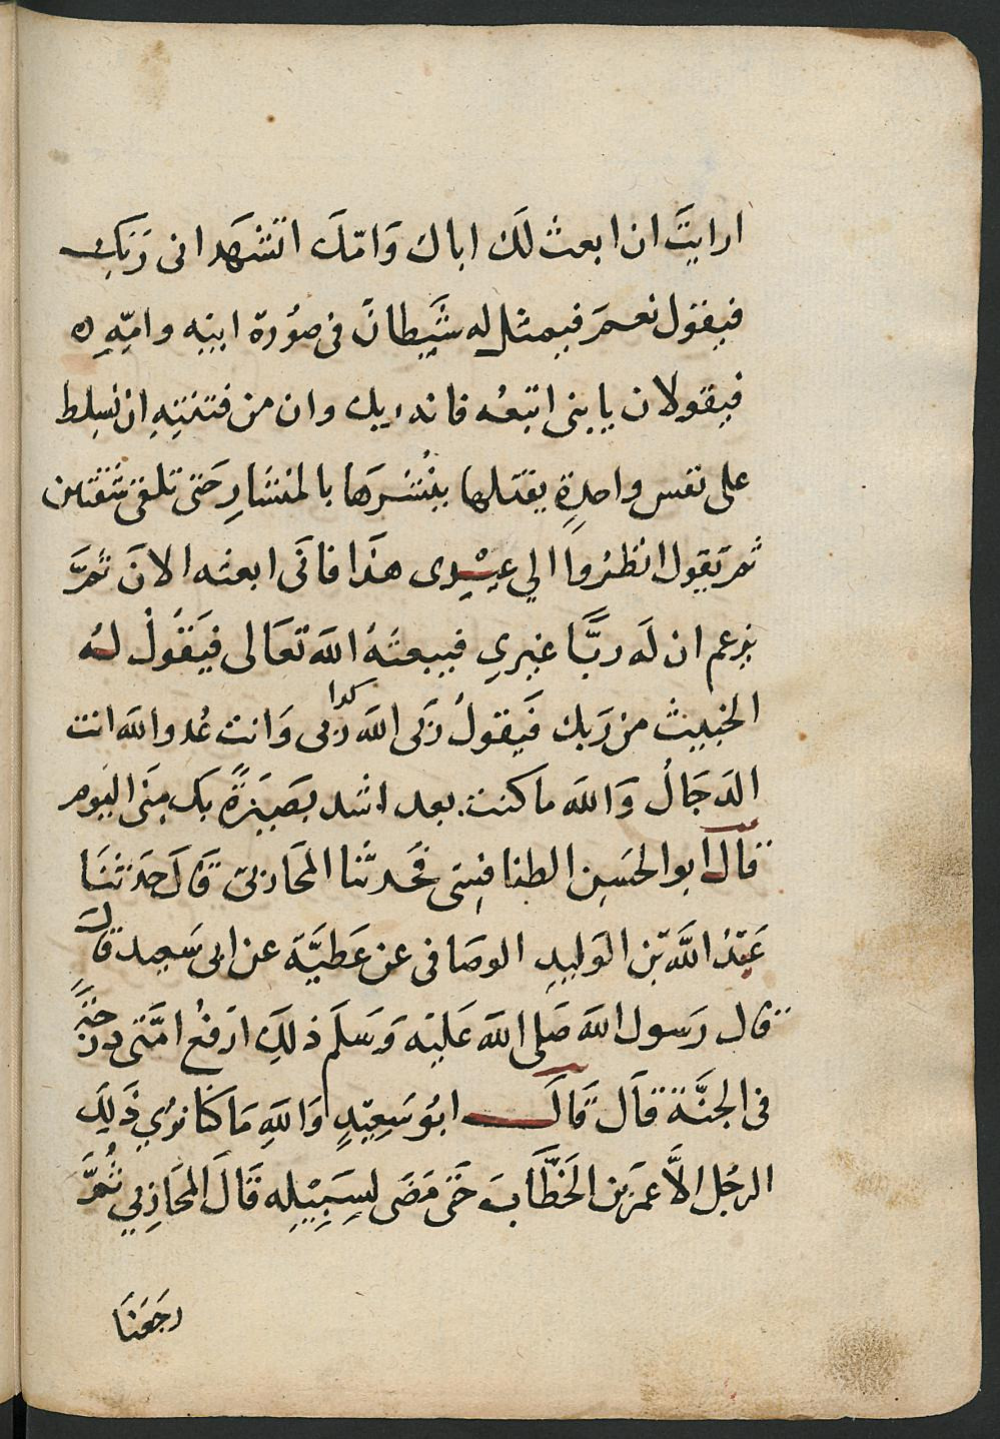 ارايتَ ان ابعث لَكَ اباك وَامّكَ اتشهَد انى رَبّك
فيقول نعم فيمثل له شَيطانً فى صُورة ابيه واميّهِ ه
فيقولان يا بنى اتبعُه فانه ربك وان من فتنتِهِ ان يُسلط
على نفس واحدةٍ يقتلها ينْشرَها بالمنشارِ حَتى تلقى شقتين
ثم يَقول انظرُوا الي عَبْدِى هذَا فانَى ابعثه الانَ ثمَّ
يزعم ان لَه ربًّا غيرىِ فيبعثهُ اللهَ تعَالى فيَقُولُ لهُ
الخبيث من رَبك فَيقولُ رَبى اللهَ ربى كذا وَانت عُدو اللهَ انت
الدَجَالُ وَاللهَ ما كنت بعد اشد بصَيرَةً بكَ مِنى اليَوم
قالَ ابو الحسَنِ الطنافِسى فحَدثَنا المحَاربىّ قَالَ حَدثنَا
عَبَيْدُ اللَّه بْن الوَليدِ الوصَافى عن عَطيَّة عن ابى سَعيد قال
قال رَسول اللهَ صَلى اللهَ عَليه وَسَلم ذلِكَ ارفعُ امَّتى درَجَةً
فى الجنَّة قال قَالَ ابُو سَعِيدٍ وَاللهِ مَا كنَا نرُي ذَلِكَ
الرجُل الاَّ عمرَ بن الخَطَّابَ حَتىَ مَضَى لسِبِيْلِه قَالَ المحَاربي ثُمَّ
رجَعنَا